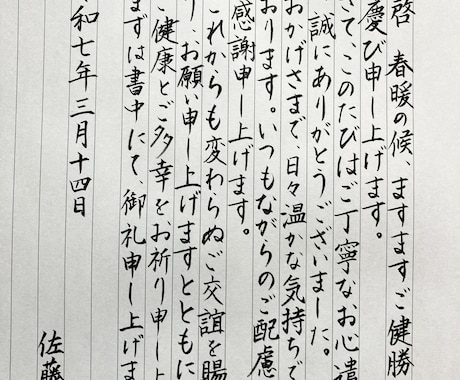 啓　春暖の候、ますますご健勝
慶び申し上げます。
さて、このたびはご丁寧なお心遣
誠にありがとうございました。
おかげさまで、日々温かな気持ちで
おります。いつもながらのご配慮
感謝申し上げます。
これからも変わらぬご交誼を賜
り、お願い申し上げますとともに
ご健康とご多幸をお祈り申し上
まずは書中にて、御礼申し上げま
和七年三月十四日
佐藤